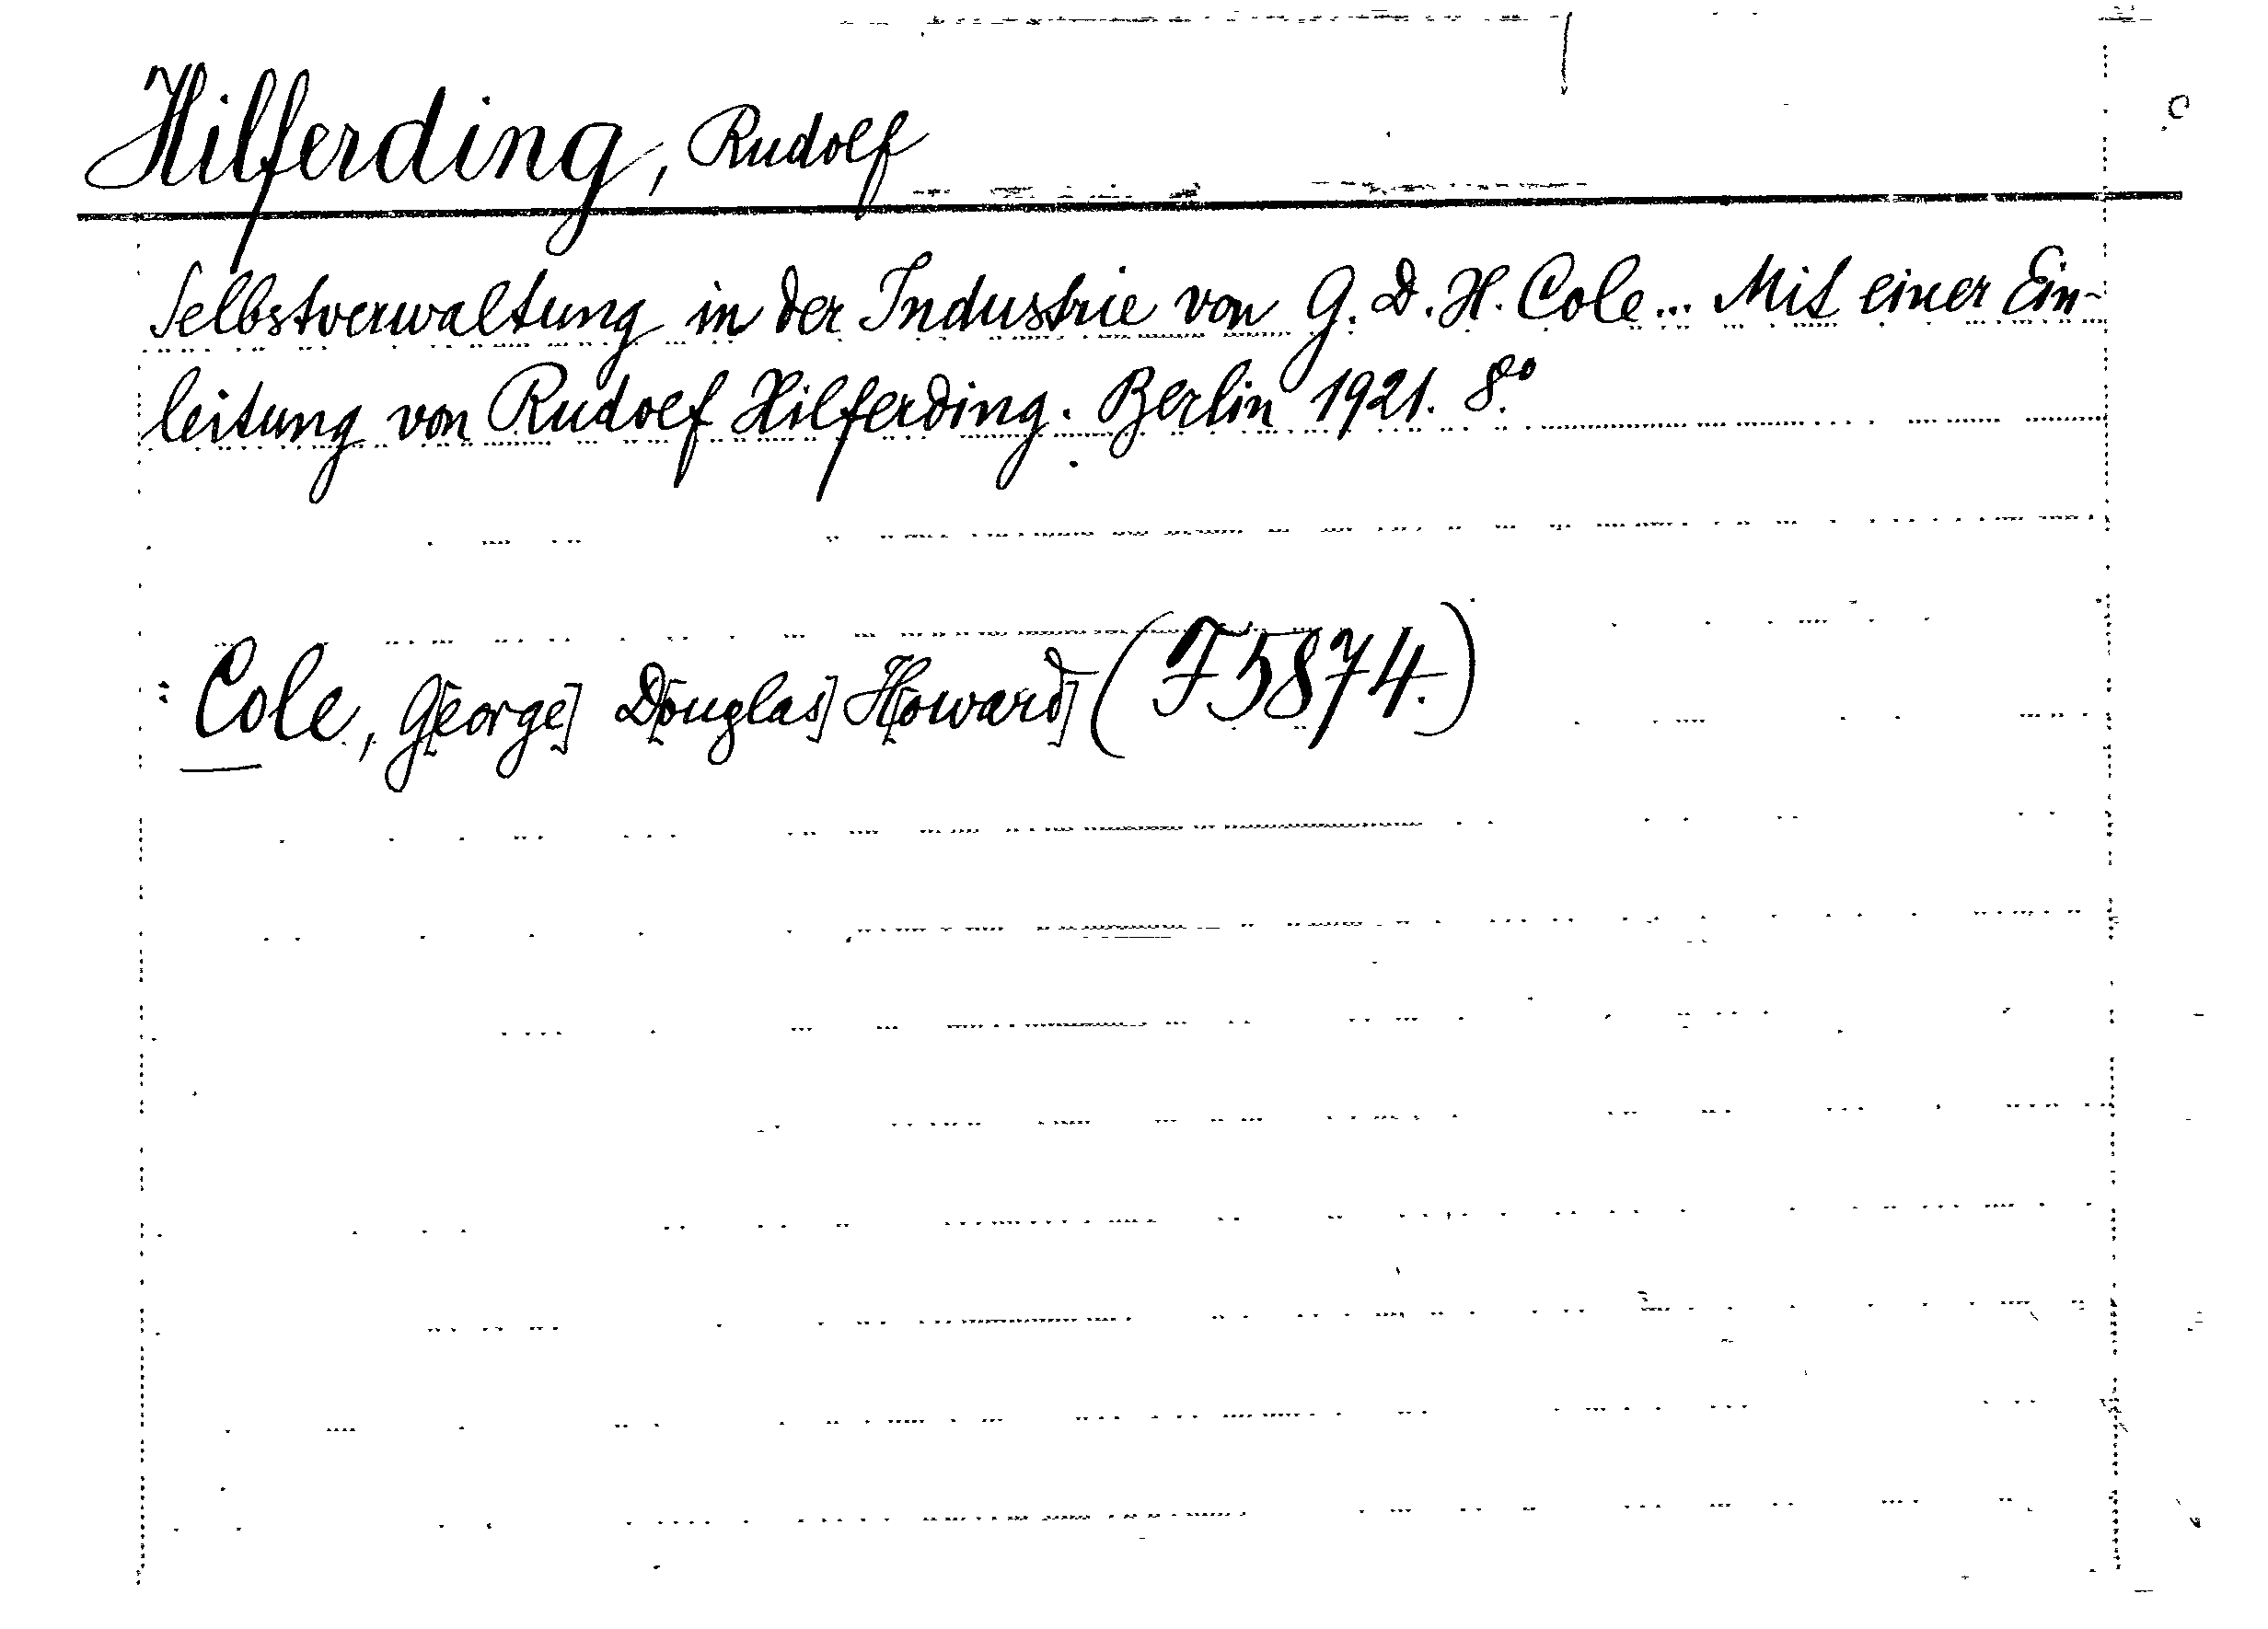 Hilferding, Rudolf
Selbstverwaltung in der Industrie von G. D. H. Cole... Mit einer Ein-
leitung von Rudolf Hilferding. Berlin 1921. 8°.
: Cole, G[eorge] D[ouglas] H[oward] (F5874.)